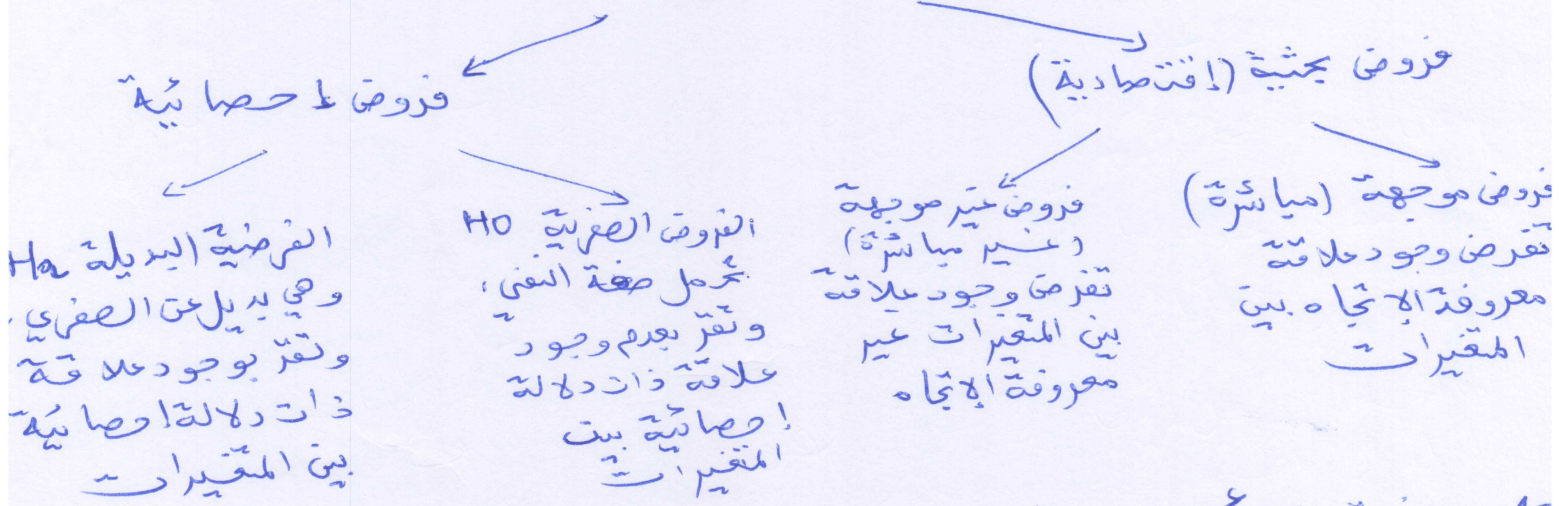 فروض بحثية (إقتصادية)
فروض إحصائية
فروض موجهة (مباشرة)
تفرض وجود علاقة
معروفة الإتجاه بين
المتغيرات
فروض غير موجهة
(غير مباشرة)
تفرض وجود علاقة
بين المتغيرات غير
معروفة الإتجاه
الفروض الصفرية H0
تحمل صفة النفي،
وتقر بعدم وجود
علاقة ذات دلالة
إحصائية بين
المتغيرات
الفرضية البديلة Ha
وهي بديل عن الصفري،
وتقر بوجود علاقة
ذات دلالة احصائية
بين المتغيرات